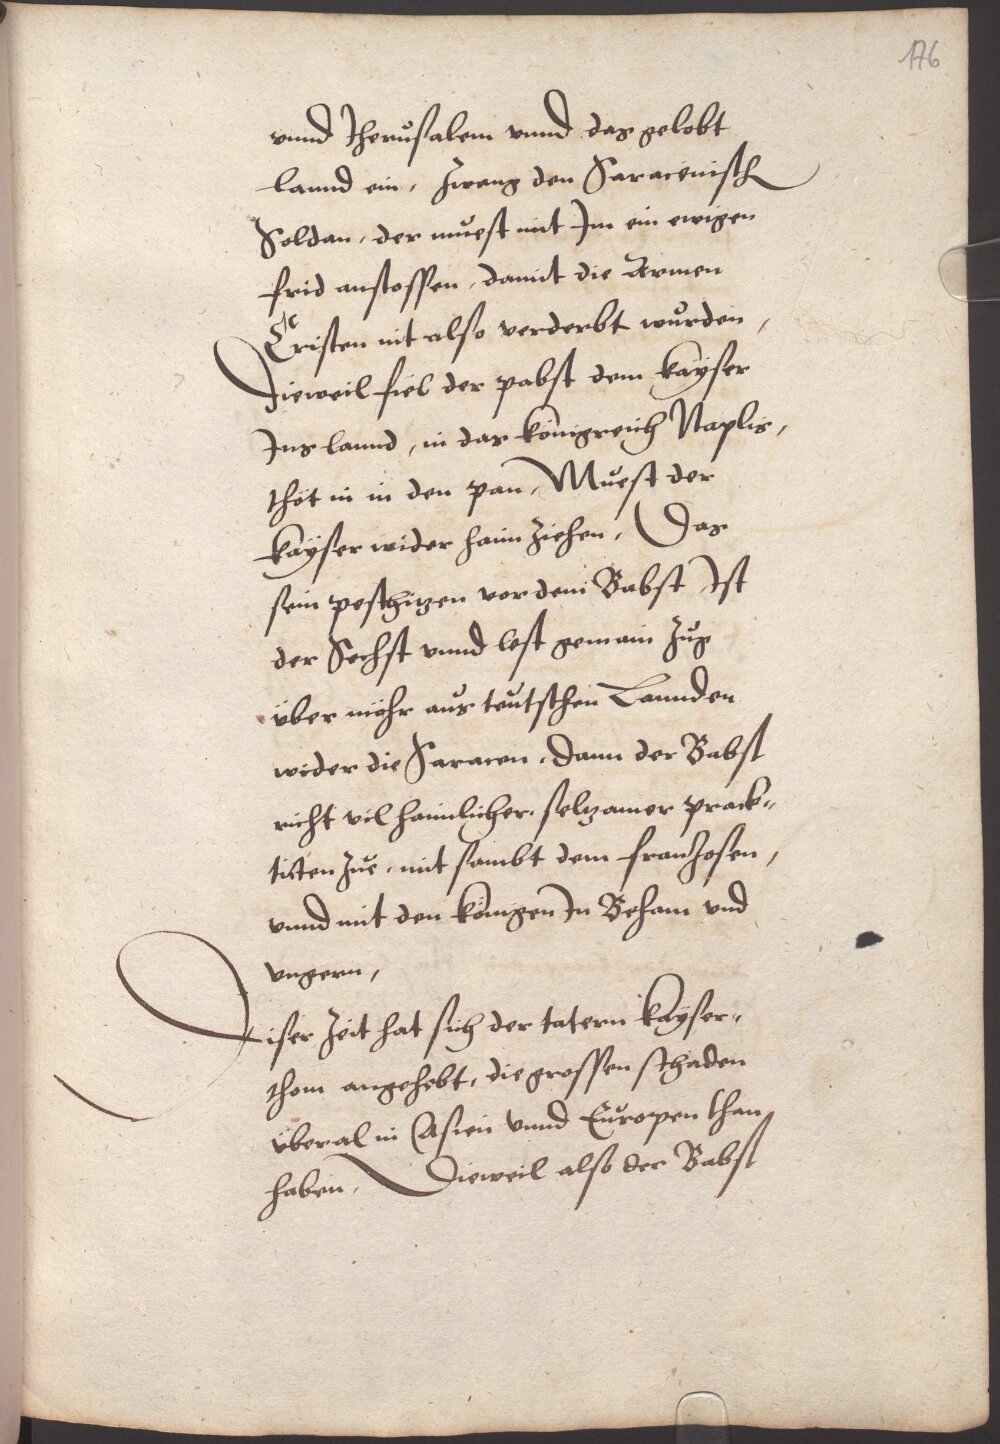 176
vnnd Jherusalem vnnd das gelobt
lannd ein, zwang den Saracenisch
Soldan, der muest mit Jm ein ewigen
frid anstossen, damit die Armen
Cristen nit also verderbt wurden,
Dieweil fiel der pabst dem kayser
Jns lannd, in das königreich Naplis,
thöt in in den pan, Muest der
kayser wider haim ziehen, Das
sein vor dem Babst Jst
der Sechst vnnd lest gemain zug
über möhr aus teutschen Lannden
wider die Saracen, Dann der Babst
richt vil haimlicher, selzamer prack-
ticken zue, mit sambt dem franzosen,
vnnd mit den königen Jn Beham vnd
vngern,
Diser Zeit hat sich der tatern kayser-
thom angehebt, die grossen schaden
überal in Asien vnnd Europen than
haben, Dieweil also der Babst